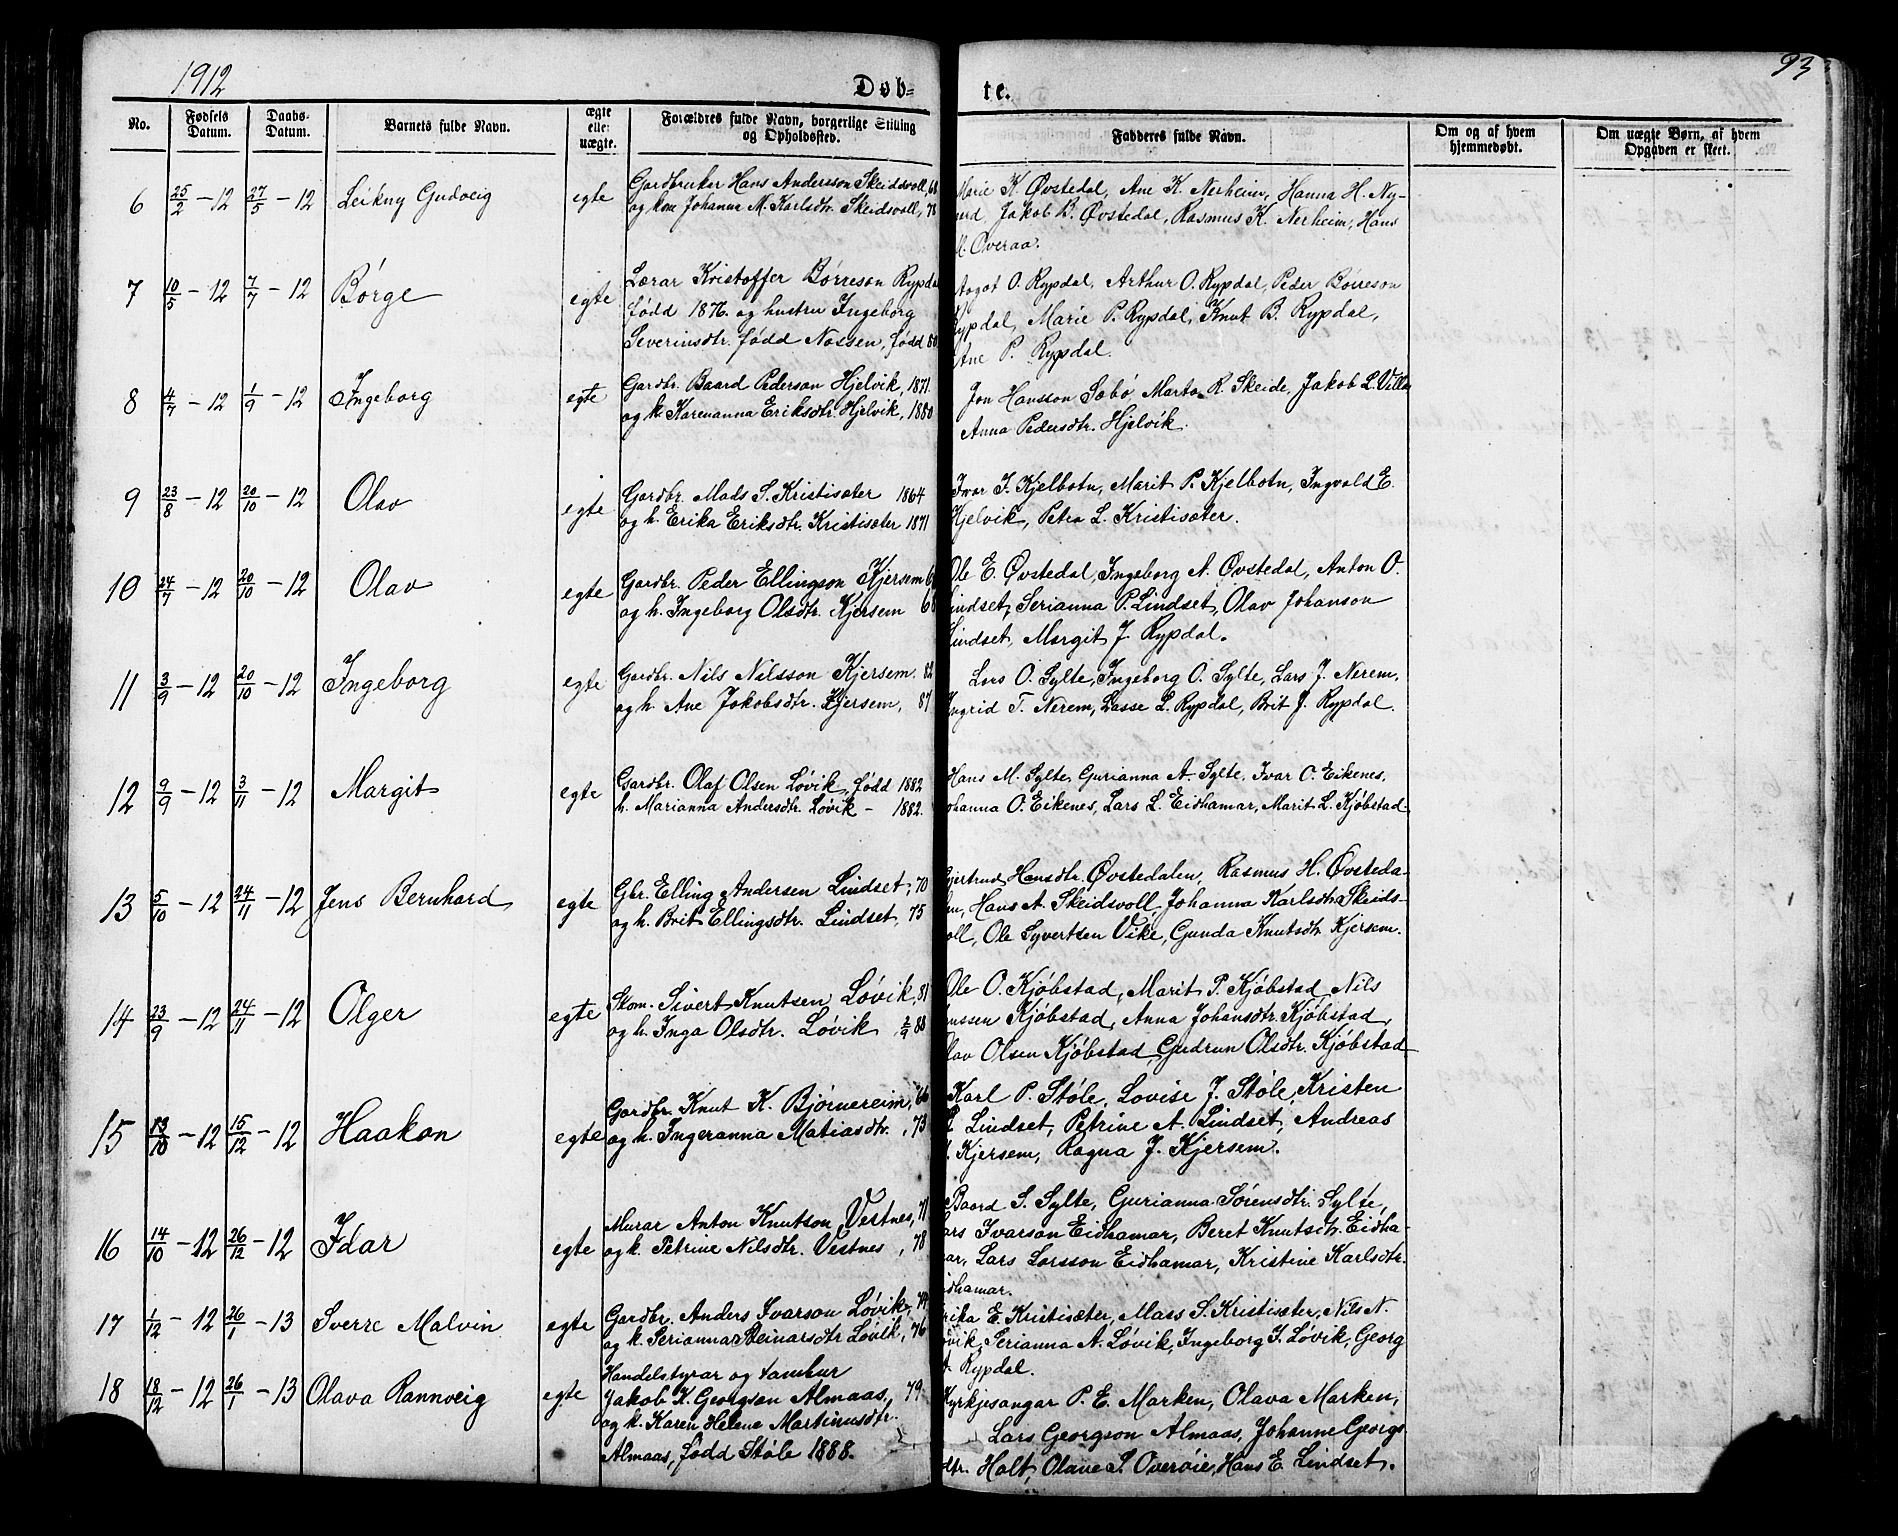 1912
93
Døb=
te.
No.
Fødsels Datum.
Daabs-Datum.
Barnets fulde Navn.
ægte eller uægte.
Forældres fulde Navn, borgerlige Stilling og Opholdssted.
Fadderes fulde Navn.
Om og af hvem hjemmedøbt.
Om uægte Børn, af hvem Opgaven er skeet.
6 25/2 - 12 27/5 - 12 Leikny Gudveig egte
Gardbruker Hans Anderson Skeidsvoll, 68
og kone Johanna M. Karlsdtr. Skeidsvoll, 78
Marie K. Øvstedal, Ane K. Nerheim, Hanna H. Ny-
Jakob B. Øvstedal, Rasmus K. Nerheim, Hans
Overaa.
7 10/5 - 12 7/7 - 12 Børge egte
Lærar Kristoffer Børreson Rypdal
fødd 1876. og hustru Ingeborg
Severinsdtr. fødd Nossen, fødd 80
Aagot O. Rypdal, Arthur O. Rypdal, Peder Børreson
Rypdal, Marie P. Rypdal, Knut B. Rypdal,
Ane P. Rypdal.
8 4/7 - 12 1/9 - 12 Ingeborg egte
Gardbr. Baard Pederson Hjelvik, 1871.
og k. Karenanna Eriksdtr. Hjelvik, 1880
Jon Hansson Sæbø, Marta R. Skeide, Jakob L. Villa
Anna Pedersdtr. Hjelvik.
9 23/8 - 12 20/10 - 12 Olav egte
Gardbr. Mads S. Kristisæter 1864
og h. Erika Eriksdtr. Kristisæter 1871
Ivar I. Kjelbotn, Marit P. Kjelbotn, Ingvald E.
Hjelvik, Petra L. Kristisæter.
10 24/7 - 12 20/10 - 12 Olav egte
Gardbr. Peder Ellingson Kjersem
og h. Ingeborg Olsdtr. Kjersem 68
Ole E. Øvstedal, Ingeborg A. Øvstedal, Anton O.
Lindset, Serianna P. Lindset, Olav Johanson
Lindset, Margit J. Rypdal.
11 3/9 - 12 20/10 - 12 Ingeborg egte
Gardbr. Nils Nilsson Kjersem. 82
og h. Ane Jakobsdtr. Kjersem, 87
Lars O. Sylte, Ingeborg O. Sylte, Lars J. Nerem,
Ingrid T. Nerem, Lasse L. Rypdal, Brit J. Rypdal.
12 9/9 - 12 3/11 - 12 Margit egte
Gardbr. Olaf Olsen Løvik, fødd 1882
h. Marianna Andersdtr. Løvik - 1882.
Hans M. Sylte, Gurianna A. Sylte, Ivar O. Eikenes,
Johanna O. Eikenes, Lars L. Eidhamar, Marit L. Kjøbstad
13 5/10 - 12 24/11 - 12 Jens Bernhard egte
Gbr. Elling Andersen Lindset, 70
og h. Brit Ellingsdtr. Lindset, 75
Gjertrud Hansdtr. Øvstedalen, Rasmus H. Øvsteda-
len, Hans A. Skeidsvoll, Johanna Karlsdtr. Skeids-
voll, Ole Syvertsen Vike, Gunda Knutsdtr. Kjersem.
14 23/9 - 12 24/11 - 12 Olger egte
Skom. Sivert Knutsen Løvik, 81
og h. Inga Olsdtr. Løvik, 2/9 88
Ole O. Kjøbstad, Marit P. Kjøbstad, Nils
Kjøbstad, Anna Johansdtr. Kjøbstad,
Olav Olsen Kjøbstad, Gudrun Olsdtr. Kjøbstad
15 13/10 - 12 15/12 - 12 Haakon egte
Gardbr. Knut K. Bjørnereim, 66
og h. Ingeranna Matiasdtr. , 73
Karl P. Støle, Lovise J. Støle, Kristen
Lindset, Petrine A. Lindset, Andreas
Kjersem, Ragna J. Kjersem.
16 14/10 - 12 26/12 - 12 Idar egte
Murar Anton Knutson Vestnes, 71
og k. Petrine Nilsdtr. Vestnes, 78
Baard S. Sylte, Gurianna Sørensdtr. Sylte,
Lars Ivarson Eidhamar, Beret Knutsdtr. Eidha-
mar, Lars Larsson Eidhamar, Kristine Karlsdtr.
Eidhamar.
17 1/12 - 12 26/1 - 13 Sverre Malvin egte
Gardbr. Anders Ivarson Løvik, 74
og k. Serianna Steinarsdtr Løvik, 76
Erika E. Kristisæter, Mass S. Kristisæter, Nils N.
Løvik, Serianna A. Løvik, Ingeborg I. Løvik, Georg
Rypdal.
18 18/12 - 12 26/1 - 13 Olava Rannveig egte
Handelstyrar og tambur
Jakob K. Georgson Almaas, 79
og k. Karen Helene Martinusdtr.
Almaas, fødd Støle 1888.
Kyrkjesangar P. E. Marken, Olava Marken,
Lars Georgson Almaas, Johanne Georgs
dtr. Holt, Olave S. Overøie, Hans E. Lindset.